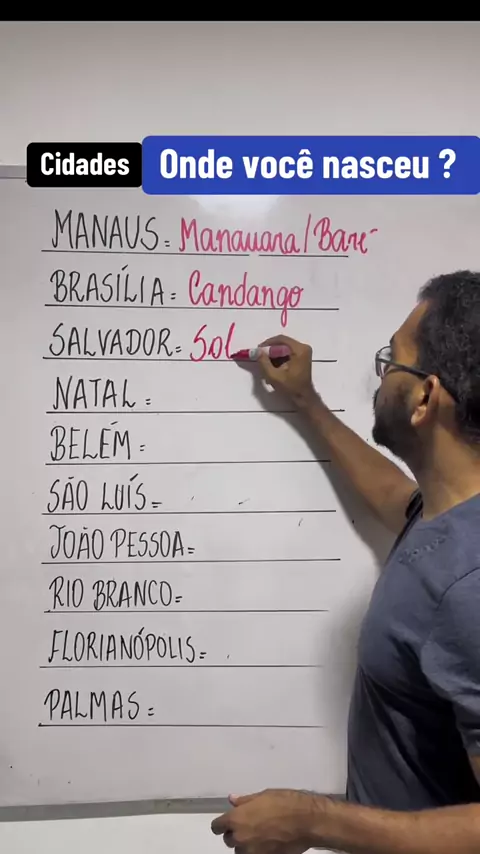 Cidades Onde você nasceu ?
MANAUS = Manauara/Baré
BRASÍLIA = Candango
SALVADOR = Sol
NATAL =
BELÉM =
SÃO LUÍS =
JOÃO PESSOA =
RIO BRANCO =
FLORIANÓPOLIS =
PALMAS =